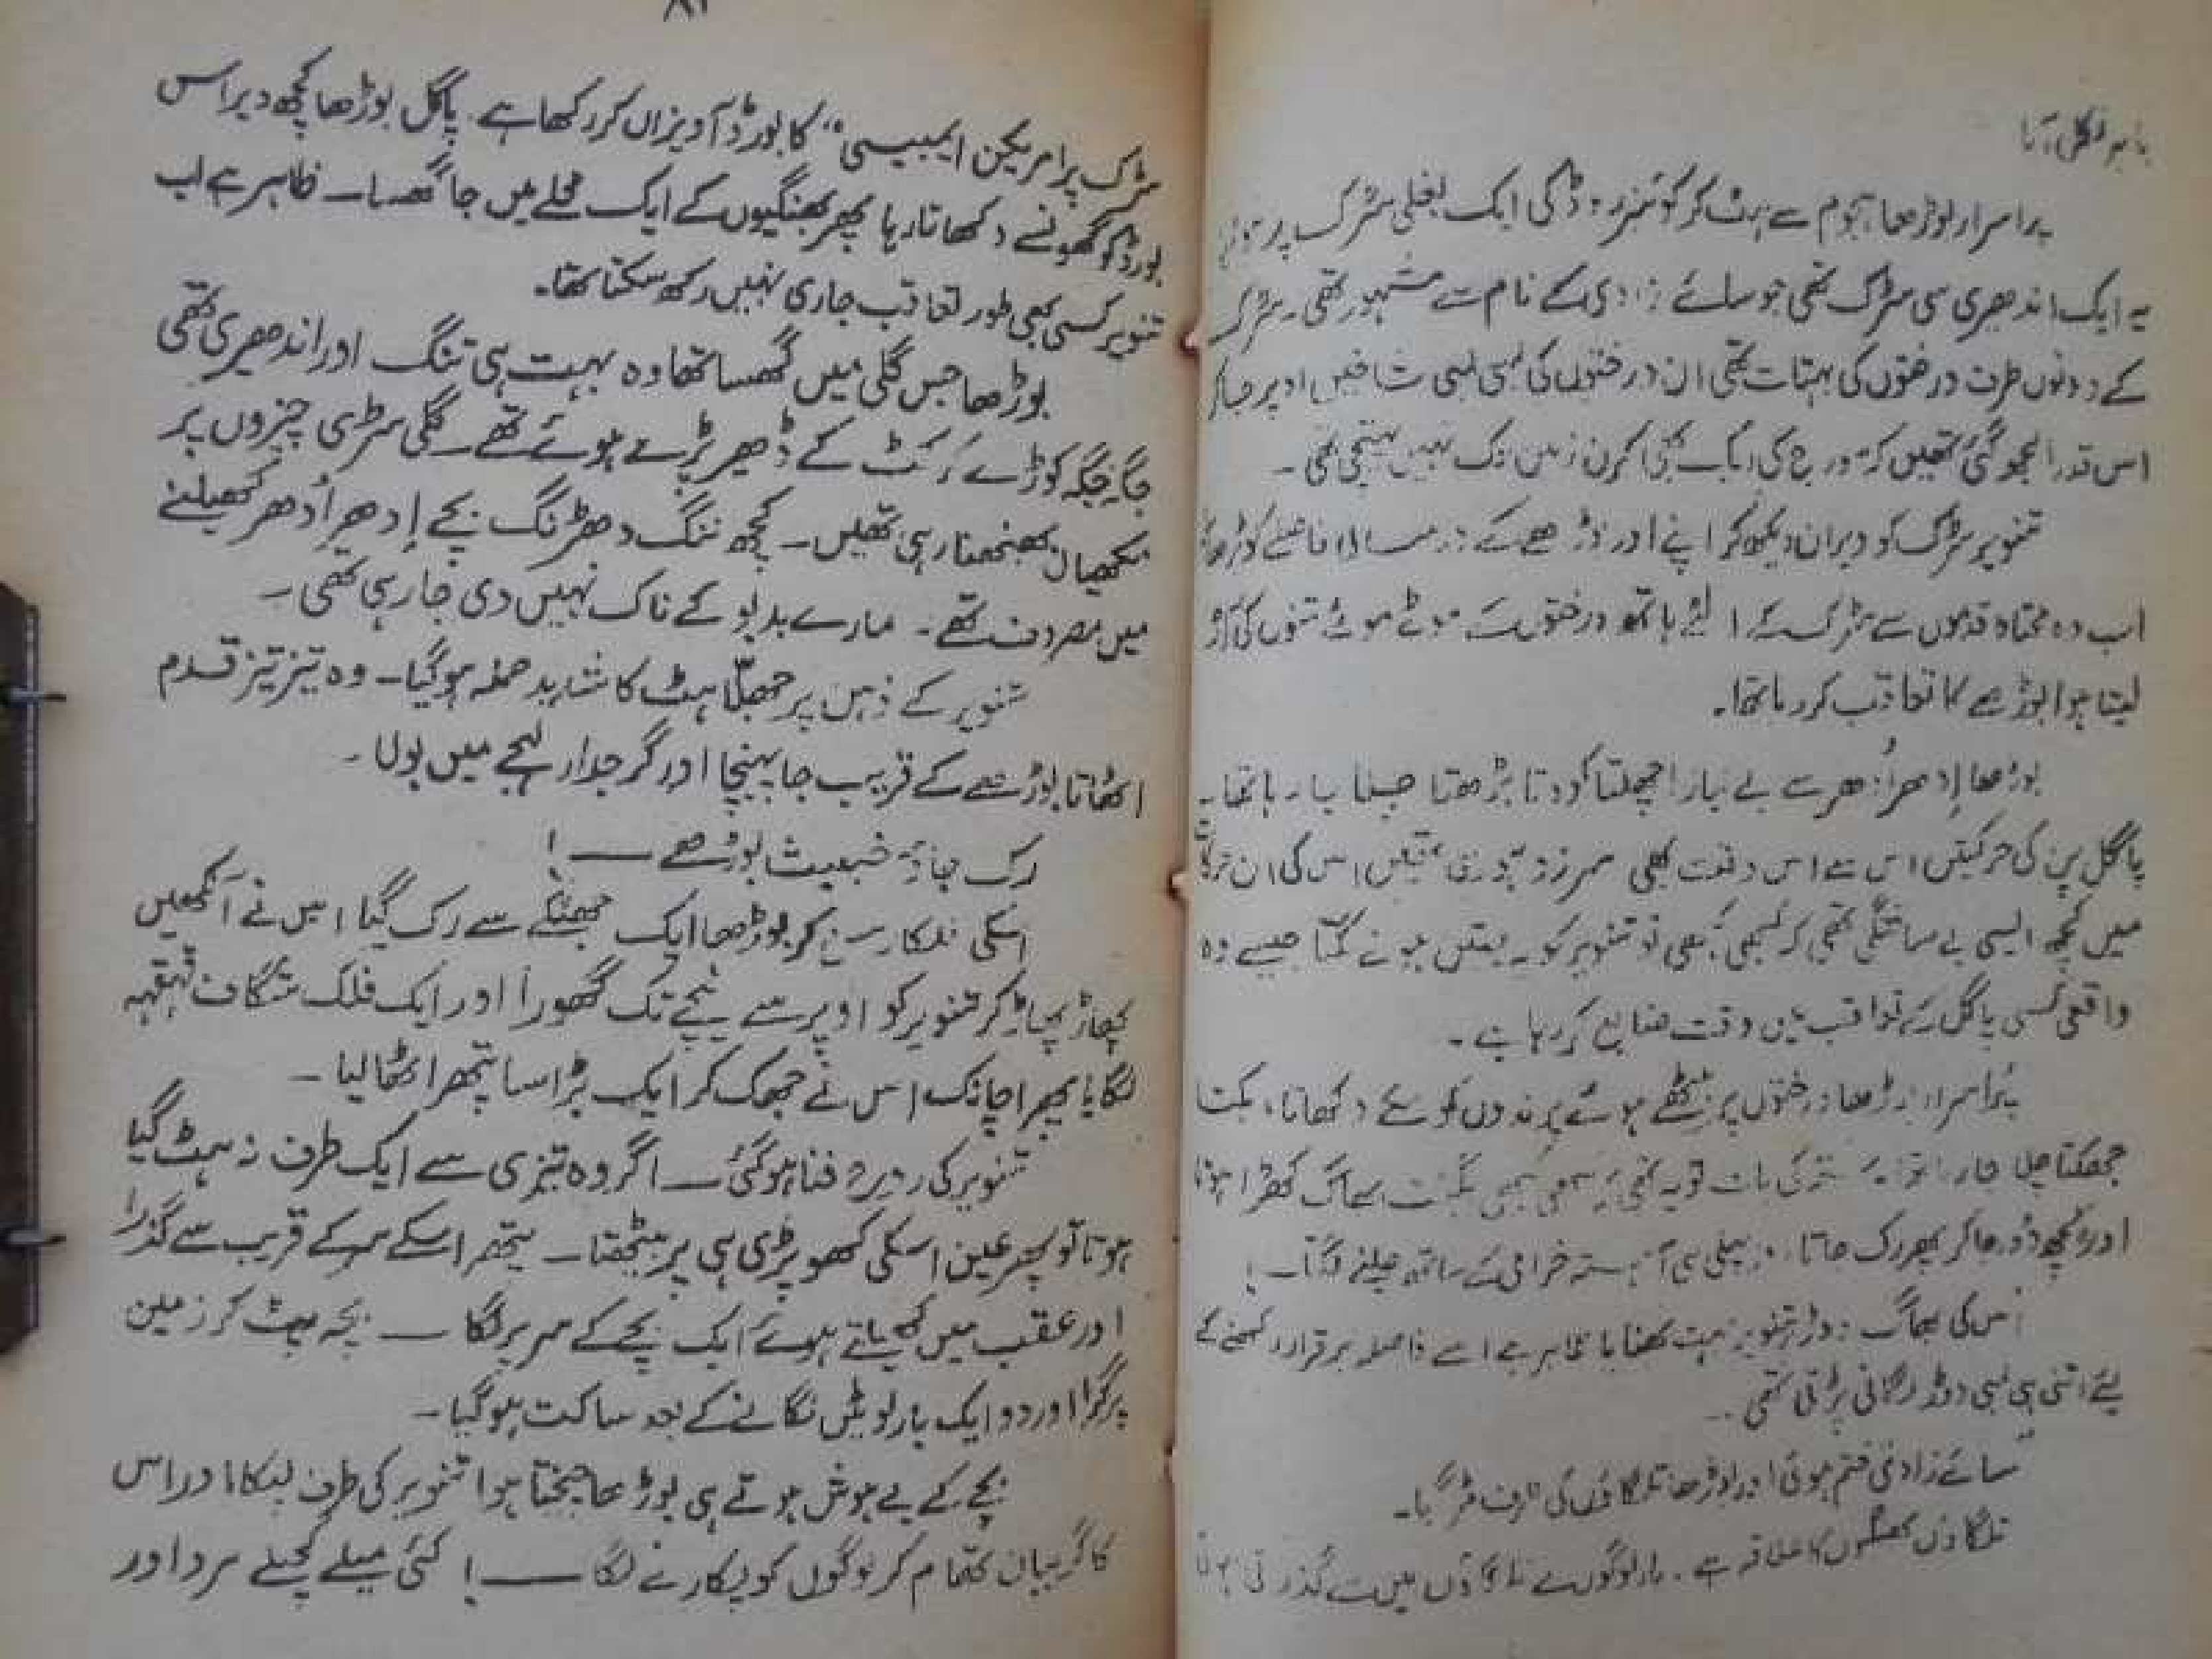 پراسرار بوڑھا ہجوم سے ہٹ کر کوئنز روڈ کی ایک بغلی سڑک پر
یہ ایک اندھیری سی سڑک تھی جو سائے زادی کے نام سے مشہور تھی۔ سڑک
کے دونوں طرف درختوں کی بہتات تھی ان درختوں کی لمبی لمبی شاخیں اوپر جاکر
اس قدر الجھ گئی تھیں کہ سورج کی ایک بھی کرن زمین تک نہیں پہنچتی تھی۔
تنویر سڑک کو ویران دیکھ کر اپنے اور بوڑھے کے درمیان فاصلے کو
اب وہ محتاط قدموں سے سڑک کے الٹے ہاتھ درختوں کے موٹے موٹے تنوں کی آڑ
لیتا ہوا بوڑھے کا تعاقب کر رہا تھا۔
بوڑھا اِدھر اُدھر سے بے نیاز اچھلتا کودتا بڑھتا چلا جا رہا تھا۔
پاگل پن کی حرکتیں اس سے اس وقت بھی سرزد ہو رہی تھیں اس کی ان
میں کچھ ایسی بے ساختگی تھی کہ کبھی کبھی تو تنویر کو یہ یقین ہونے لگتا جیسے وہ
واقعی کسی پاگل کے تعاقب میں وقت ضایع کر رہا ہے۔
پُراسرار بوڑھا درختوں پر بیٹھے ہوئے پرندوں کو مکے دکھاتا، بکتا
جھکتا چلا جا رہا تھا۔ کی بات تو یہ تھی کہ کبھی کبھی یکلخت بھاگ کھڑا ہوتا
اور کچھ دُور جا کر پھر رک جاتا، پہلی سی آہستہ خرامی کے ساتھ چلنے لگتا۔!
اس کی بھاگ دوڑ پر تنویر بہت ظاہر ہے اسے فاصلہ برقرار رکھنے کے
لئے اتنی ہی لمبی دوڑ لگانی پڑتی تھی۔
سائے زادی ختم ہوئی اور بوڑھا تلگاؤں کی طرف مڑ گیا۔
تلگاؤں بھنگیوں کا علاقہ ہے۔ یار لوگوں نے تلگاؤں میں سے گذرتی ہوئی
سڑک پر امریکن ایمبیسی" کا بورڈ آویزاں کر رکھا ہے۔ پاگل بوڑھا کچھ دیر اس
بورڈ کو گھونسے دکھاتا رہا پھر بھنگیوں کے ایک محلے میں جا گھسا۔ ظاہر ہے اب
تنویر کسی بھی طور تعاقب جاری نہیں رکھ سکتا تھا۔
بوڑھا جس گلی میں گھسا تھا وہ بہت ہی تنگ اور اندھیری تھی
جگہ جگہ کوڑے کرکٹ کے ڈھیر پڑے ہوئے تھے۔ گلی سڑی چیزوں پر
مکھیاں بھنبھنا رہی تھیں۔ کچھ ننگ دھڑنگ بچے اِدھر اُدھر کھیلنے
میں مصروف تھے۔ مارے بدبو کے ناک نہیں دی جا رہی تھی۔
تنویر کے ذہن پر جھلّاہٹ کا شدید حملہ ہو گیا۔ وہ تیز تیز قدم
اٹھاتا بوڑھے کے قریب جا پہنچا اور گرجدار لہجے میں بولا۔
رک جاؤ خبیث بوڑھے ——!
اسکی للکار سن کر بوڑھا ایک جھٹکے سے رک گیا اس نے آنکھیں
پھاڑ پھاڑ کر تنویر کو اوپر سے نیچے تک گھورا اور ایک فلک شگاف قہقہہ
لگایا پھر اچانک اس نے جھک کر ایک بڑا سا پتھر اٹھا لیا۔
تنویر کی روح فنا ہو گئی۔ اگر وہ تیزی سے ایک طرف نہ ہٹ گیا
ہوتا تو پتھر عین اسکی کھوپڑی ہی پر بیٹھتا۔ پتھر اسکے سر کے قریب سے گذرا
اور عقب میں کھیلتے ہوئے ایک بچے کے سر پر لگا — بچہ پٹ کر زمین
پر گرا اور دو ایک بار لوٹیں لگانے کے بعد ساکت ہو گیا۔
بچے کے بے ہوش ہوتے ہی بوڑھا چیختا ہوا تنویر کی طرف لپکا اور اس
کا گریبان تھام کر لوگوں کو پکارنے لگا ——! کئی میلے کچیلے مرد اور